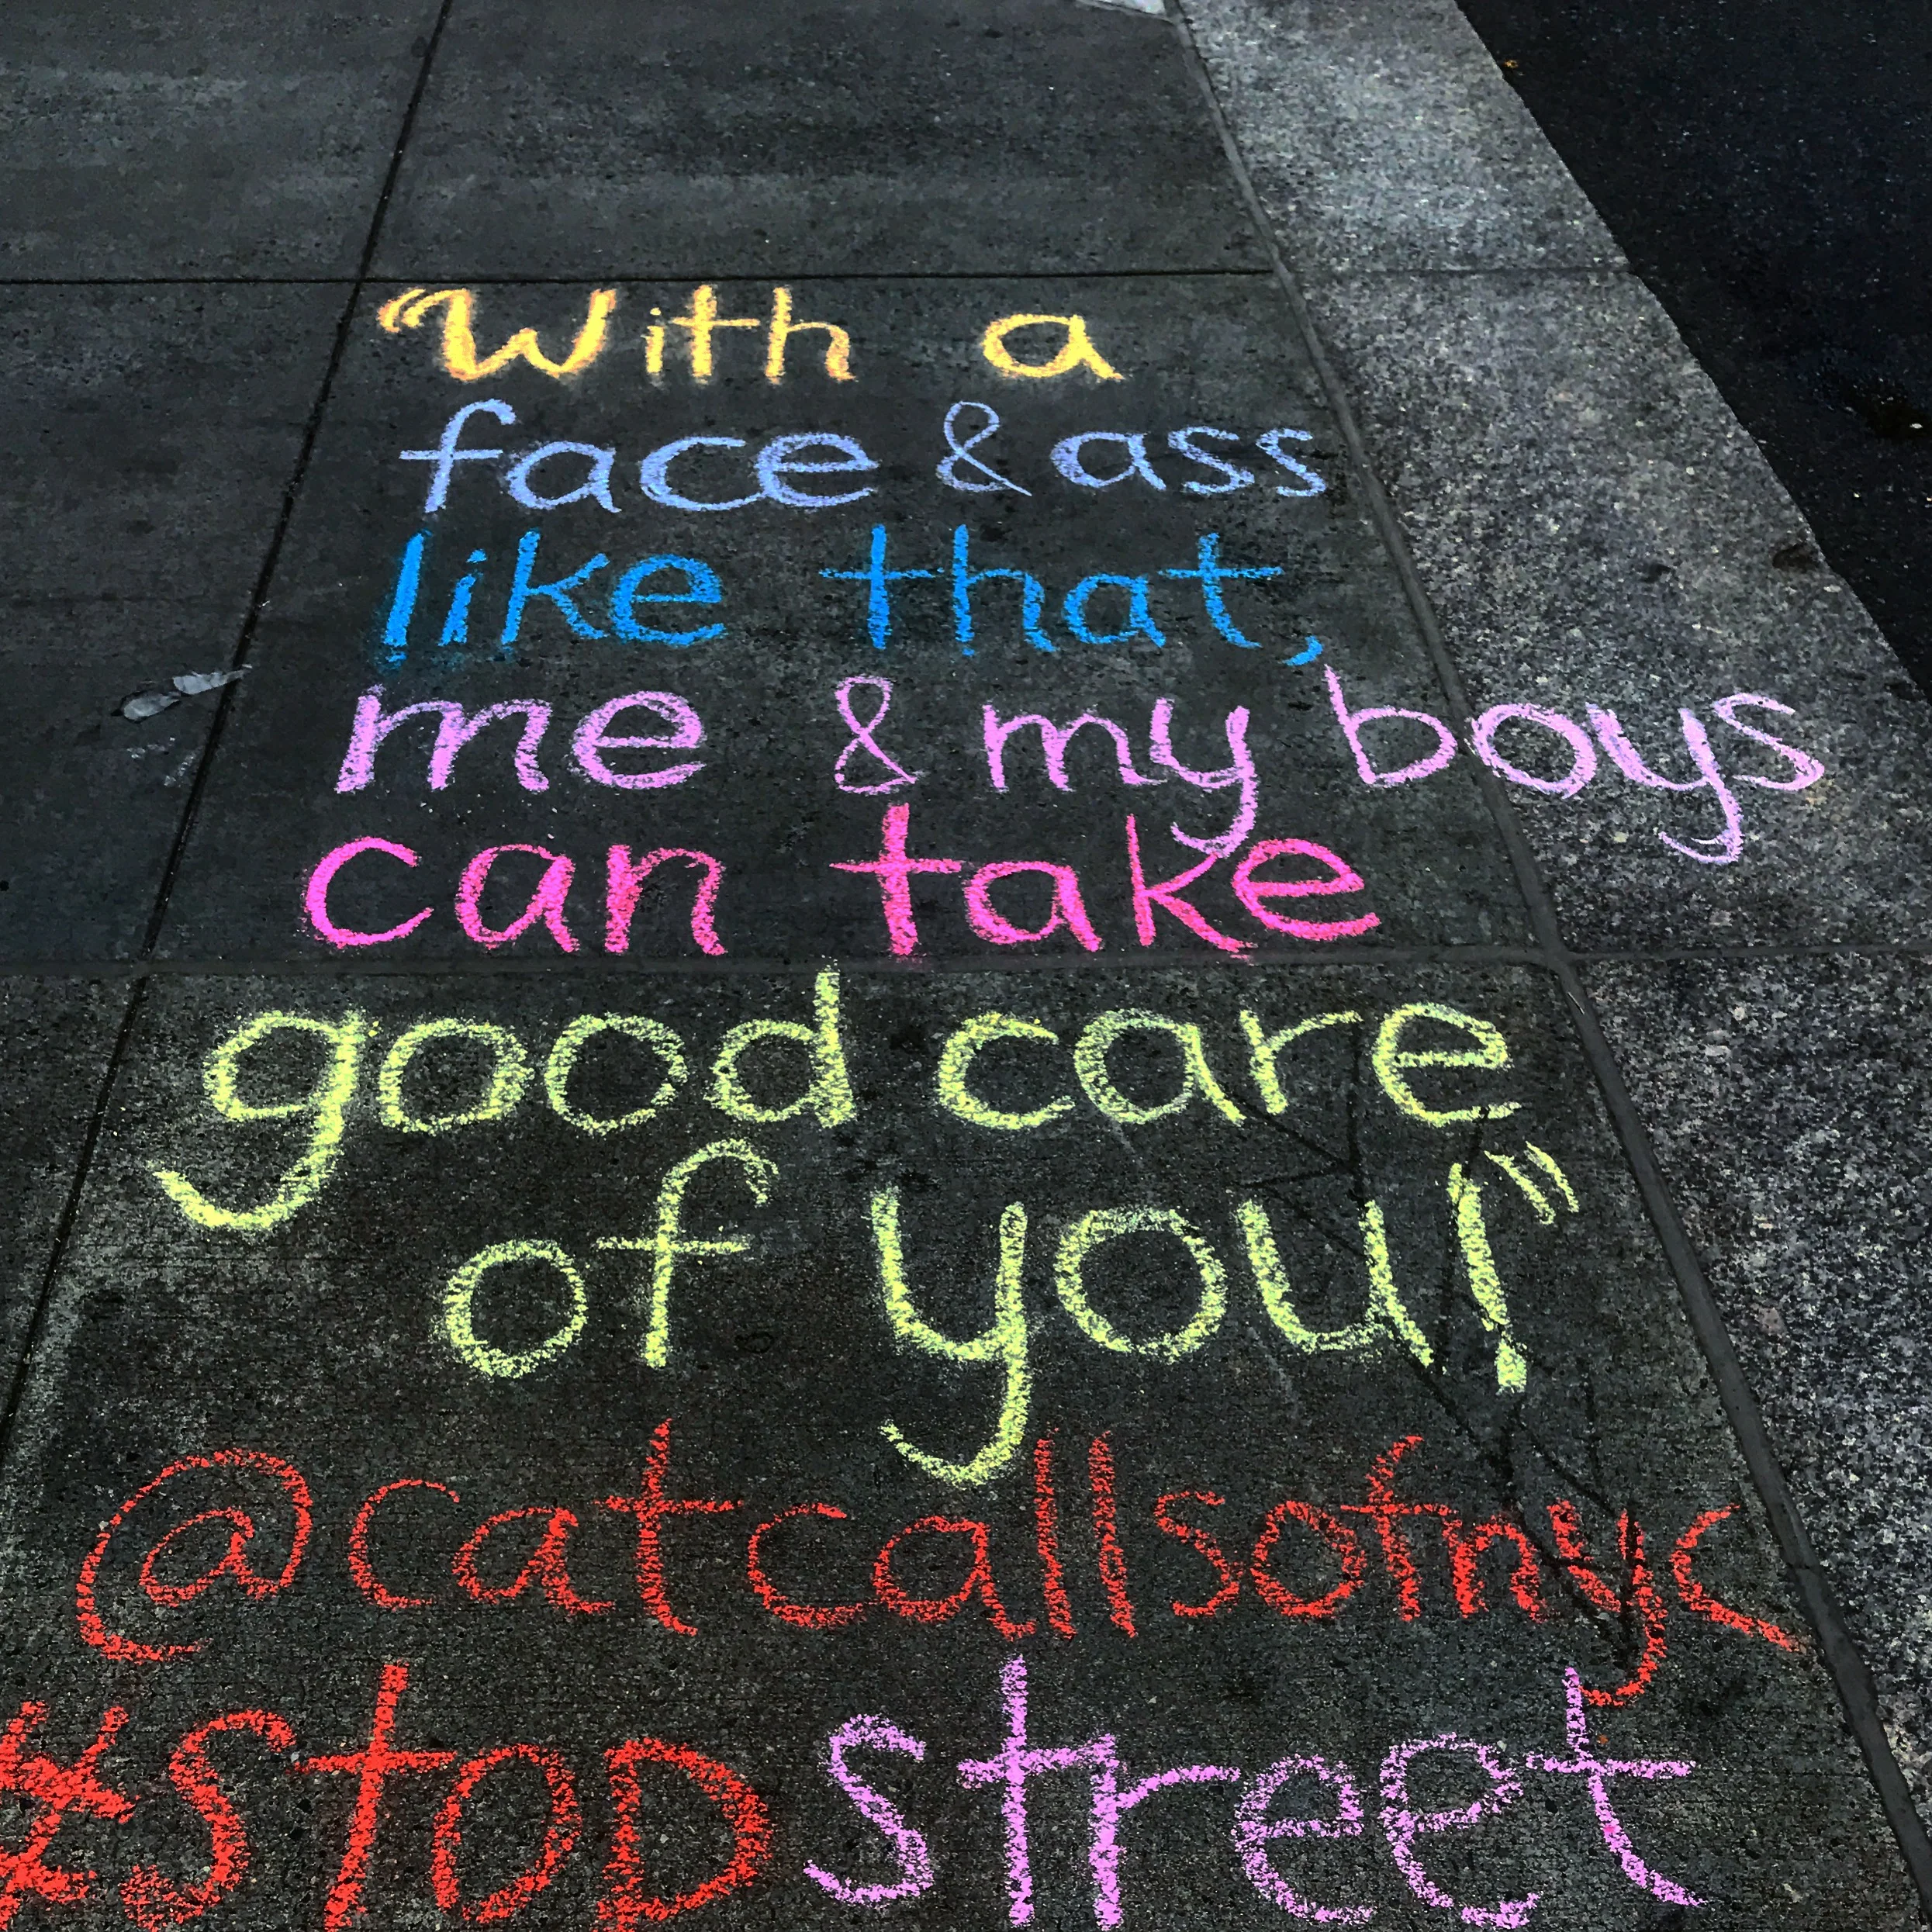 "With a
face & ass
like that,
me & my boys
can take
good care
of you!"
@catcallsofnyc
#stop street